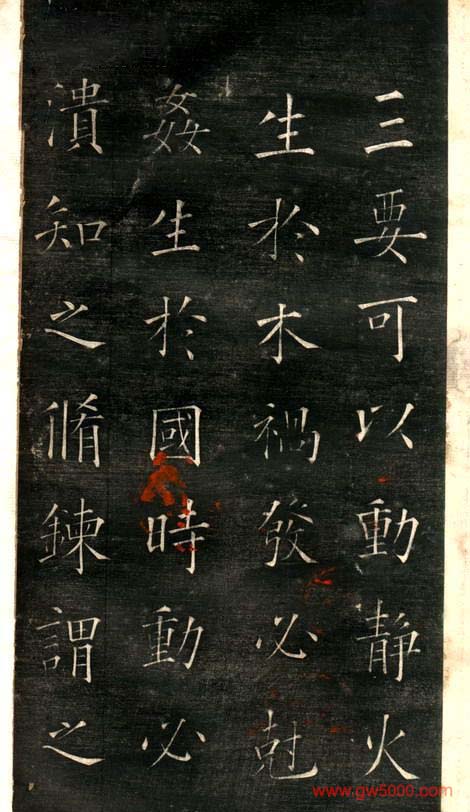 三要可以動靜火
生於木禍發必尅
姦生於國時動必
潰知之脩鍊謂之
www.gw5000.com